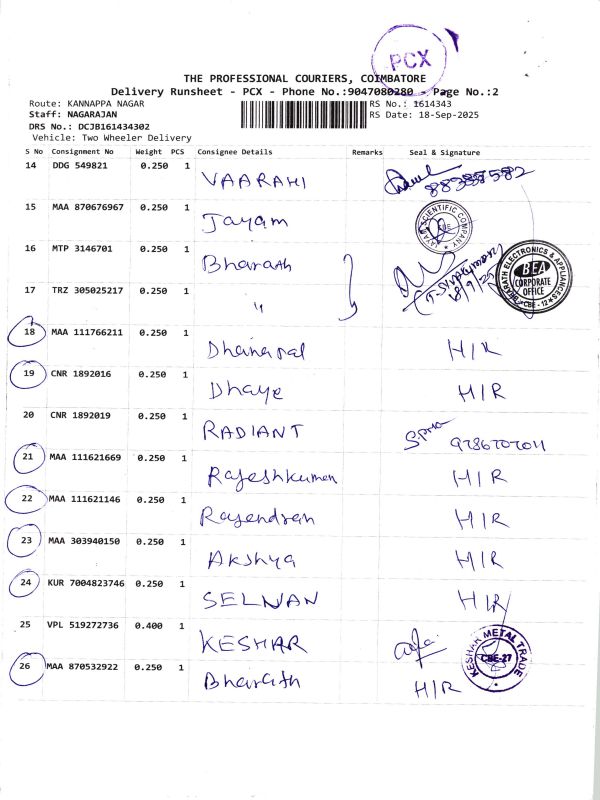 PCX
THE PROFESSIONAL COURIERS, COIMBATORE
Delivery Runsheet - PCX - Phone No.:9047080280 - Page No.:2
Route: KANNAPPA NAGAR RS No.: 1614343
Staff: NAGARAJAN RS Date: 18-Sep-2025
DRS No.: DCJB161434302
Vehicle: Two Wheeler Delivery
S No Consignment No Weight PCS Consignee Details Remarks Seal & Signature
14 DDG 549821 0.250 1 VAARAHI
15 MAA 870676967 0.250 1 Jayam JAYAM SCIENTIFIC COMPANY
16 MTP 3146701 0.250 1 Bharath
17 TRZ 305025217 0.250 1 " 18/9/25 BHARATH ELECTRONICS & APPLIANCES BEA CORPORATE OFFICE CBE - 12
18 MAA 111766211 0.250 1 Dhanapal H/R
19 CNR 1892016 0.250 1 Dhaye H/R
20 CNR 1892019 0.250 1 RADIANT 9786707011
21 MAA 111621669 0.250 1 Rajeshkumar H/R
22 MAA 111621146 0.250 1 Rajendran H/R
23 MAA 303940150 0.250 1 Akshya H/R
24 KUR 7004823746 0.250 1 SELNAN H/R
25 VPL 519272736 0.400 1 KESHAR KESHAR METAL TRADE CBE-27
26 MAA 870532922 0.250 1 Bharath H/R